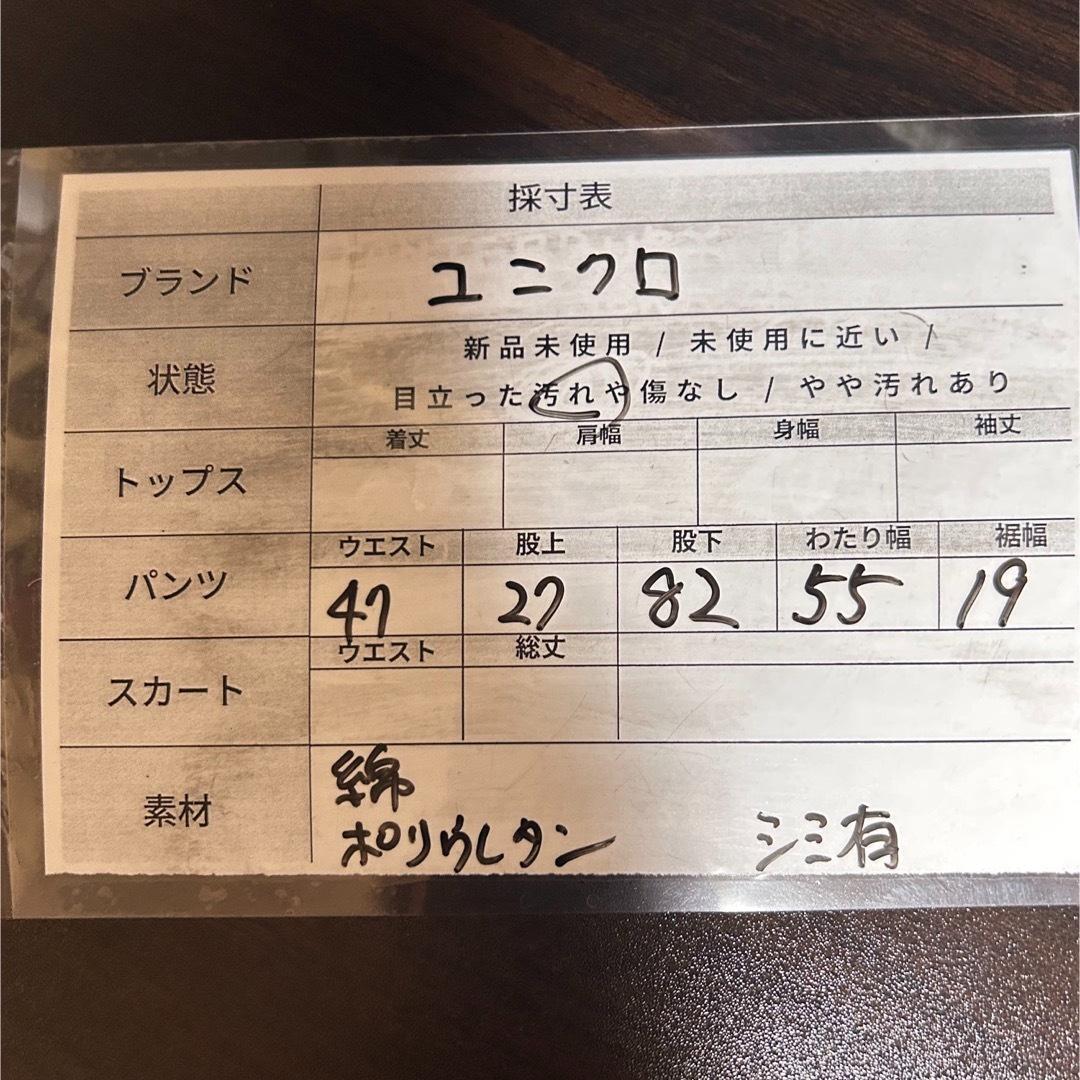 採寸表
ブランド ユニクロ
新品未使用 / 未使用に近い /
状態
目立った汚れや傷なし / やや汚れあり
着丈 肩幅 身幅 袖丈
トップス
ウエスト 股上 股下 わたり幅 裾幅
パンツ 47 27 82 55 19
ウエスト 総丈
スカート
綿
素材
ポリウレタン シミ有